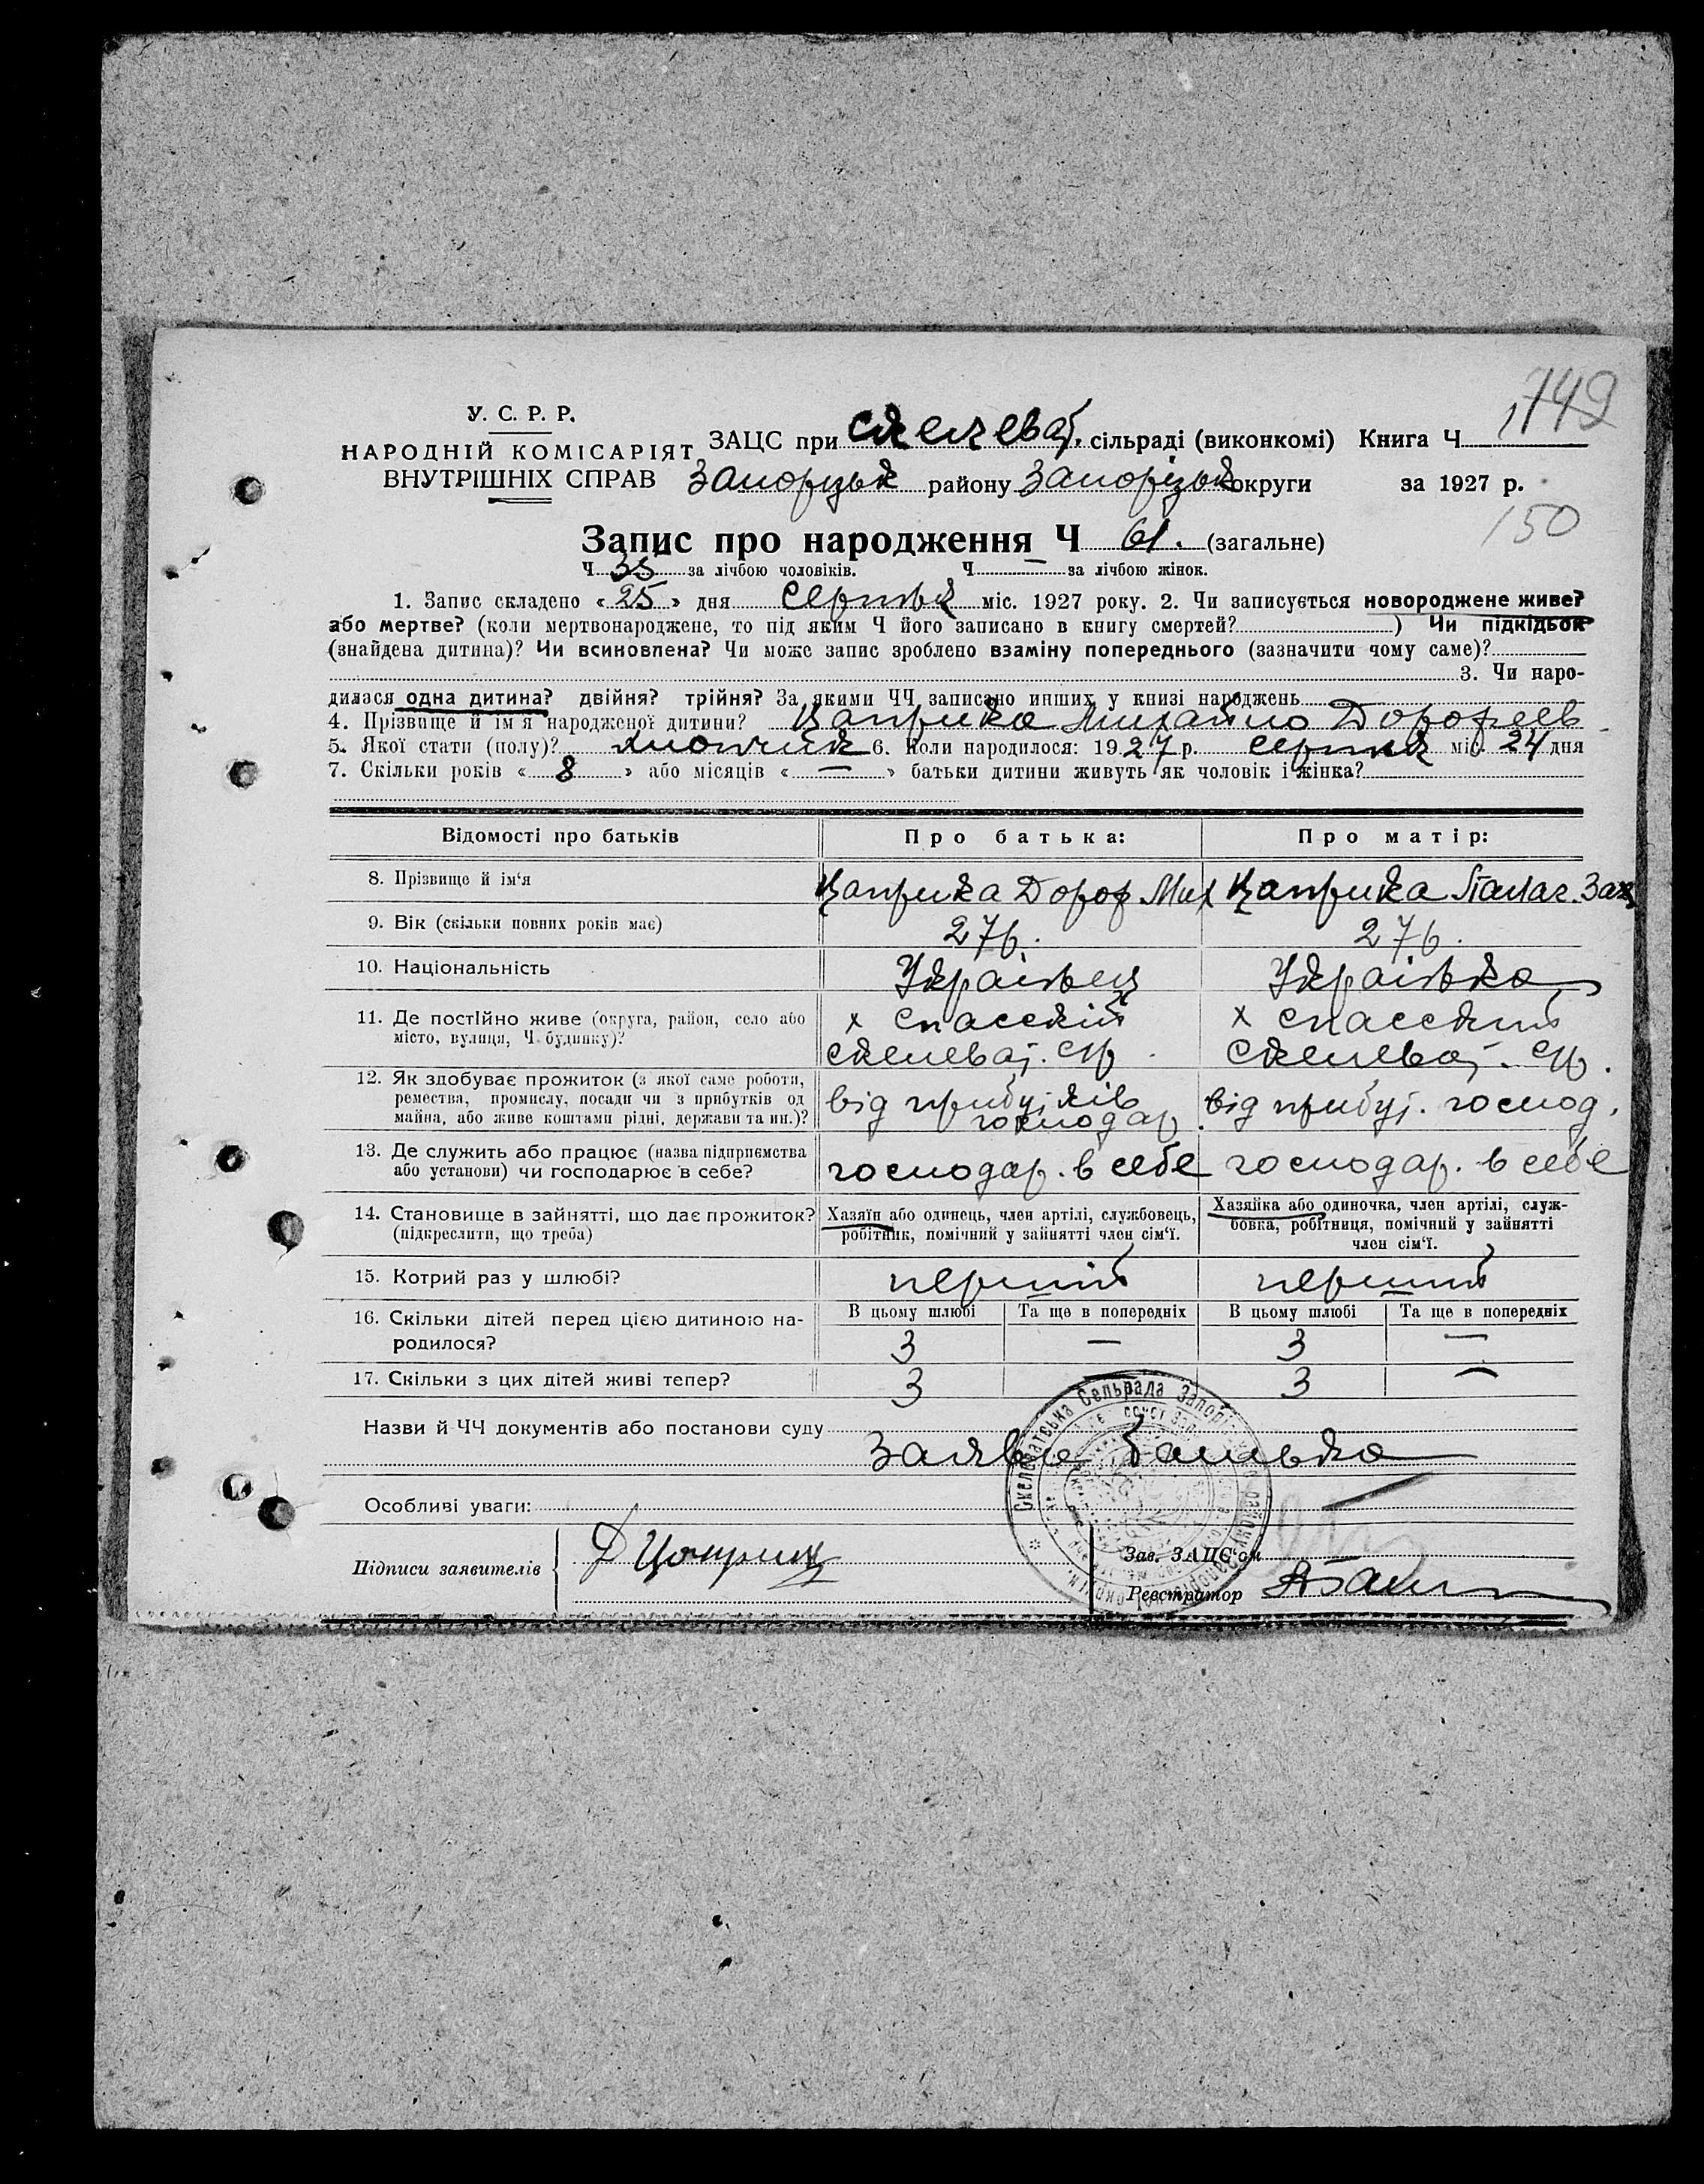 1749
У. С. Р. Р.
НАРОДНІЙ КОМІСАРІЯТ
ВНУТРІШНІХ СПРАВ
ЗАЦС при Скелеват. сільраді (виконкомі) Книга Ч
Запорізьк району Запорізьк округи за 1927 р.
150
Запис про народження Ч 61. (загальне)
Ч 35 за лічбою чоловіків. Ч — за лічбою жінок.
1. Запис складено « 25 » дня Серпня міс. 1927 року. 2. Чи записується новороджене живе?
або мертве? (коли мертвонароджене, то під яким Ч його записано в книгу смертей? ) Чи підкідьок
(знайдена дитина)? Чи всиновлена? Чи може запис зроблено взаміну попереднього (зазначити чому саме)?
3. Чи наро-
дилася одна дитина? двійня? трійня? За якими ЧЧ записано инших у книзі народжень
4. Прізвище й ім'я народженої дитини? Цаприка Михайло Дорофеев
5. Якої стати (полу)? хлопчик 6. Коли народилося: 1927 р. серпня міс. 24 дня
7. Скільки років « 8 » або місяців « — » батьки дитини живуть як чоловік і жінка?
Відомості про батьків Про батька: Про матір:
8. Прізвище й ім'я Цаприка Дороф Мих Цаприка Палаг. Зах
9. Вік (скільки повних років має) 27 р. 27 р.
10. Національність Українець Українка
11. Де постійно живе (округа, район, село або х Спасский х Спасский
місто, вулиця, Ч будинку)? Скелеват. с/р Скелеват. с/р.
12. Як здобуває прожиток (з якої саме роботи,
ремества, промислу, посади чи з прибутків од від прибутків від прибут. господ.
майна, або живе коштами рідні, держави та ин.)? господар.
13. Де служить або працює (назва підприємства
або установи) чи господарює в себе? господар. в себе господар. в себе
14. Становище в зайнятті, що дає прожиток? Хазяїн або одинець, член артілі, службовець, Хазяйка або одиночка, член артілі, служ-
(підкреслити, що треба) робітник, помічний у зайнятті член сім'ї. бовка, робітниця, помічний у зайнятті
член сім'ї.
15. Котрий раз у шлюбі? перший перший
В цьому шлюбі Та ще в попередніх В цьому шлюбі Та ще в попередніх
16. Скільки дітей перед цією дитиною на-
родилося? 3 — 3 —
17. Скільки з цих дітей живі тепер? 3 3 —
Назви й ЧЧ документів або постанови суду
Заява батька
Особливі уваги:
Підписи заявителів Д Цаприка
Зав. ЗАЦС'ом
Реєстратор
Скелеватська Сельрада Запорізького району Запорізької округи